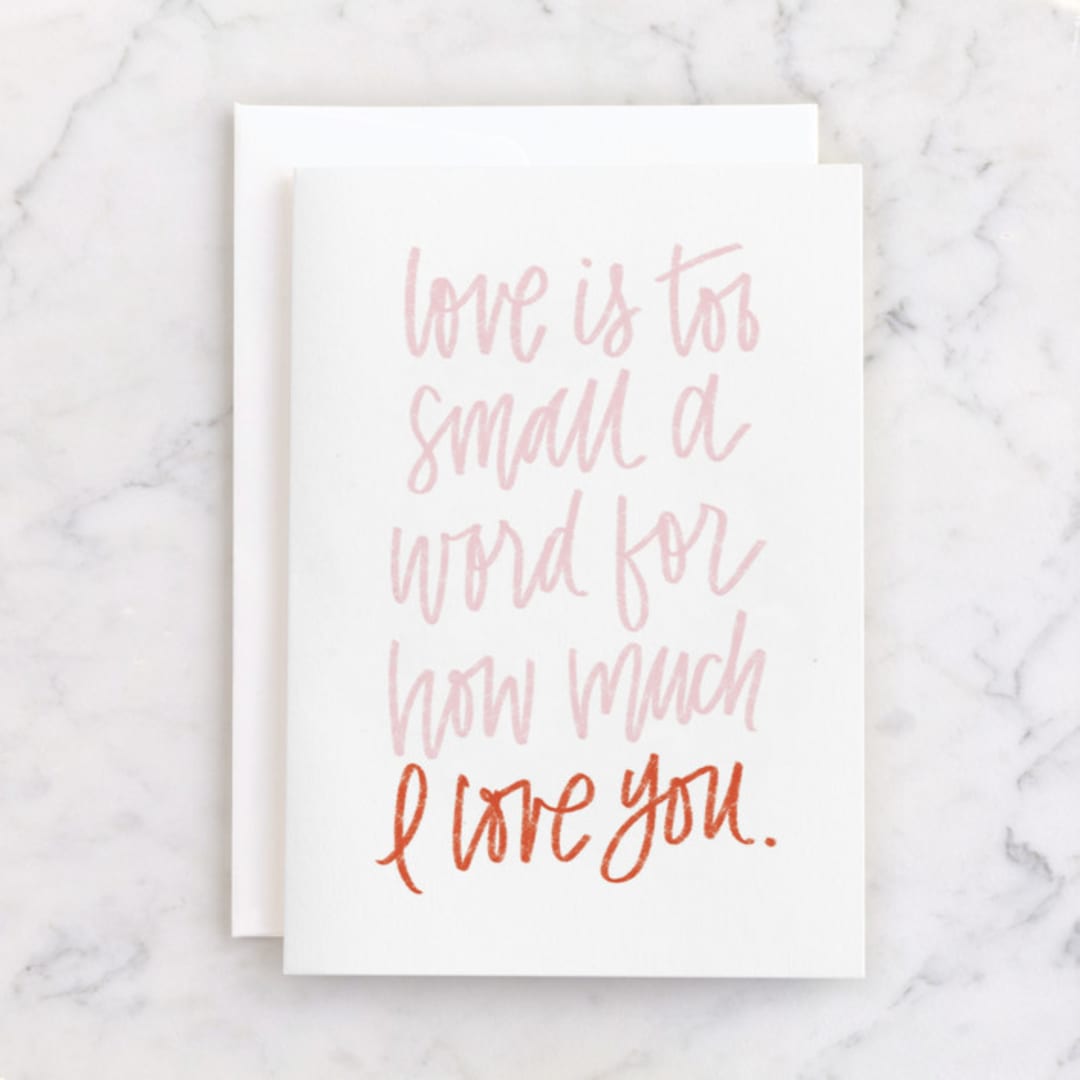 love is too
small a
word for
how much
I love you.